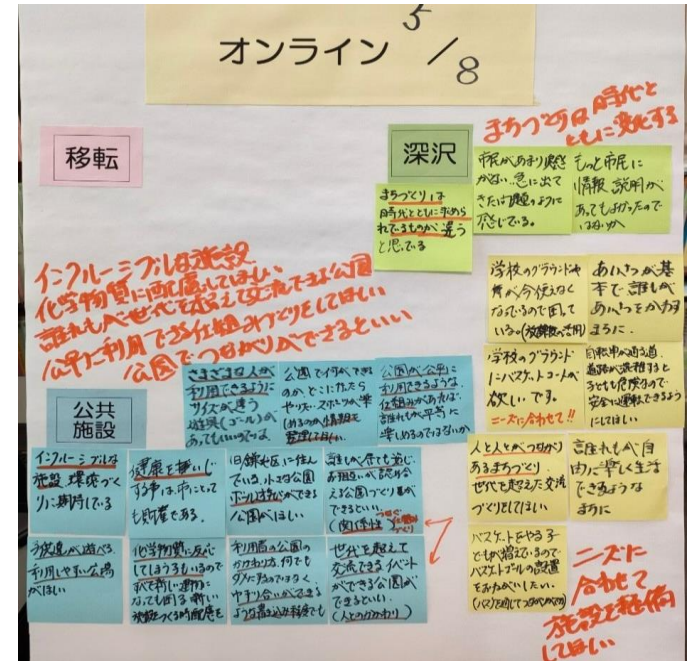 オンライン 5/8
移転
深沢
まちづくりは時代と
ともに変化する
まちづくりは
時代とともに求めら
れているものが違う
と思っている
市民があまり実感
がない。急に出て
きた問題のように
感じている。
もっと市民に
情報 説明が
あってもよかったので
はないか
インクルーシブな施設
化学物質に配慮してほしい
誰れもが世代を超えて交流できる公園
公平に利用できる仕組みづくりをしてほしい
公園でつながりができるといい
学校のグラウンドや
が今使えなく
なっているので困って
いる。
あいさつが基
本で誰もが
あいさつをかわす
まちに。
学校のグラウンド
にバスケットコートが
欲しいです。
ニーズに合わせて!!
自転車が通る道
道路が混雑すると
子どもも危険なので
安全に運転できるよう
にしてほしい
公共
施設
さまざまな人が
利用できるように
サイズが違う
遊具(ゴール)が
あってもいいのでは
公園で何ができる
のか、どこに行ったら
やりたいスポーツが楽
しめるのか情報を
整理してほしい
公園が公平に
利用できるような
仕組みがあれば
誰れもが平等に
楽しめるのではないか
インクルーシブな
施設、環境づく
りに期待している
健康を維持
する事は、市にとって
も財産である。
旧鎌倉地区に住ん
でいる。小さな公園
ボール遊びができる
公園がほしい
誰もが居ても楽し
お互いが認め合
える公園づくりが
できるといい。
(関係性)つなぐ
人と人とがつながり
あるまちづくり
世代を超えた交流
づくりをしてほしい
誰れもが自
由に楽しく生活
できるような
まちに
子供達が遊べる
利用しやすい公園
がほしい
化学物質に反応
してしまう方もいるので
すべて新しい建物に
なっても困る 新しい
施設をつくる時配慮を
利用者の公園の
かかわり方、何でも
ダメにするのではなく、
やすり合いができる
ような書き込み制度でも
世代を超えて
交流できるイベント
ができる公園が
できるといい。
(人とのかかわり)
バスケットをやる子
どもが増えているので
バスケットゴールの設置
をおねがいしたい。
ニーズに
合わせて
施設を整備
してほしい